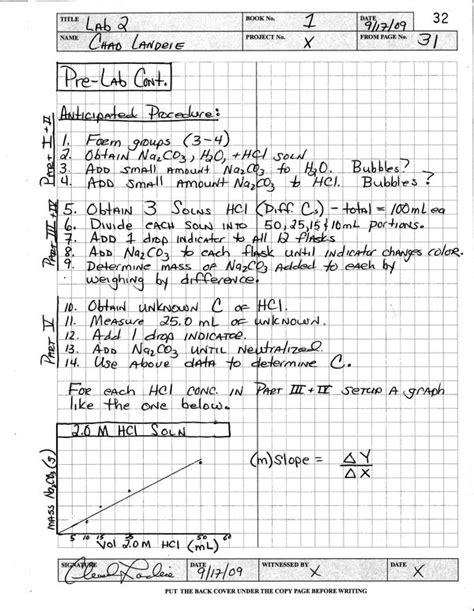 TITLE LAB 2 BOOK No. 1 DATE 9/17/09 32
NAME CHAD LANDRIE PROJECT No. X FROM PAGE No. 31
PRE-LAB CONT.
ANTICIPATED PROCEDURE:
PART I + II
1. FORM groups (3-4)
2. OBTAIN Na₂CO₃, H₂O, + HCl SOLN
3. ADD SMALL AMOUNT Na₂CO₃ to H₂O. Bubbles?
4. ADD SMALL AMOUNT Na₂CO₃ to HCl. Bubbles?
PART III + IV
5. OBTAIN 3 SOLNS HCl (Diff. Cs) - total = 100mL ea
6. DIVIDE EACH SOLN INTO 50, 25, 15 & 10mL PORTIONS.
7. ADD 1 drop INDICATOR to All 12 flasks
8. ADD Na₂CO₃ to each flask UNTIL INDICATOR changes COLOR.
9. DETERMINE MASS OF Na₂CO₃ ADDED to each by
weighing by difference.
PART V
10. OBTAIN UNKNOWN C OF HCl.
11. MEASURE 25.0 mL OF UNKNOWN.
12. Add 1 drop INDICATOR.
13. ADD Na₂CO₃ UNTIL NEUTRALIZED.
14. USE ABOVE DATA to determine C.
FOR EACH HCl CONC. IN PART III + IV SETUP A graph
like the one below.
2.0 M HCl SOLN
(m)Slope = ΔY
ΔX
MASS Na₂CO₃ (g)
5 10 15 50 60
Vol 2.0 M HCl (mL)
SIGNATURE DATE 9/17/09 WITNESSED BY X DATE X
PUT THE BACK COVER UNDER THE COPY PAGE BEFORE WRITING